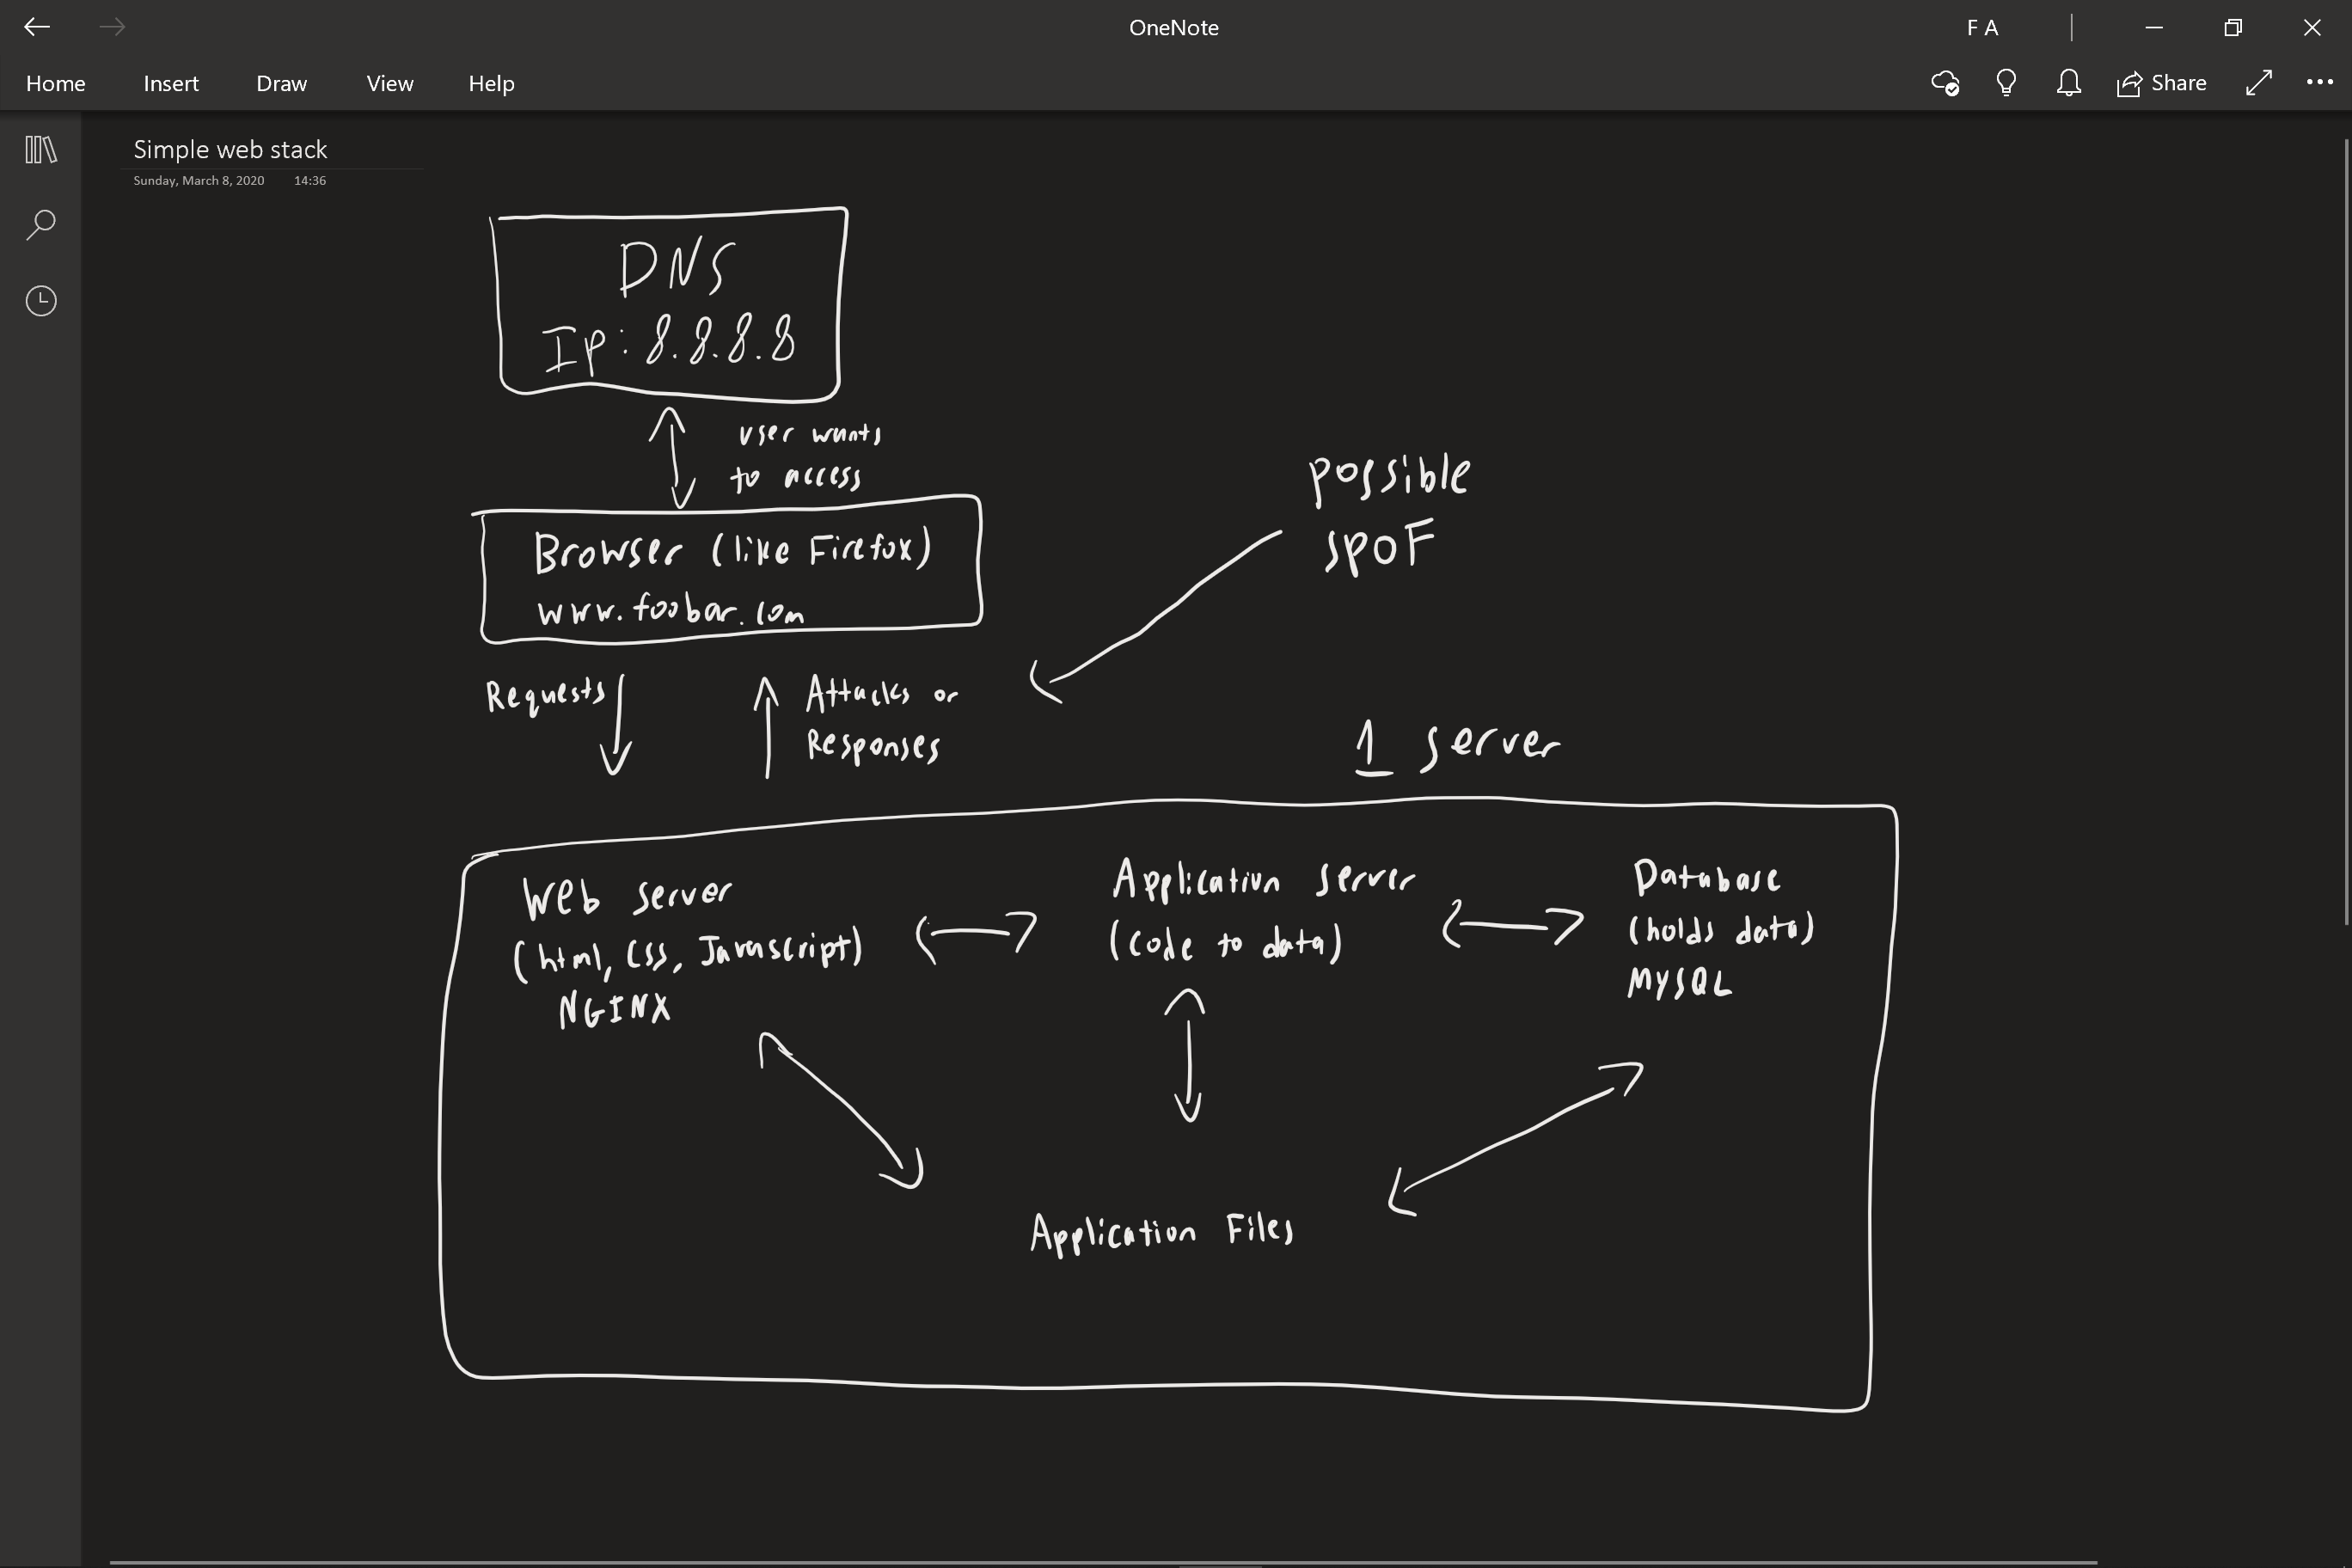 OneNote
F A
Home Insert Draw View Help
Share
Simple web stack
Sunday, March 8, 2020 14:36
DNS
IP: 8.8.8.8
user wants
to access
possible
SPOF
Browser (like Firefox)
www.foobar.com
Requests
Attacks or
Responses
1 server
Web server
(html, css, Javascript)
NGINX
Application server
(code to data)
Database
(holds data)
MySQL
Application Files